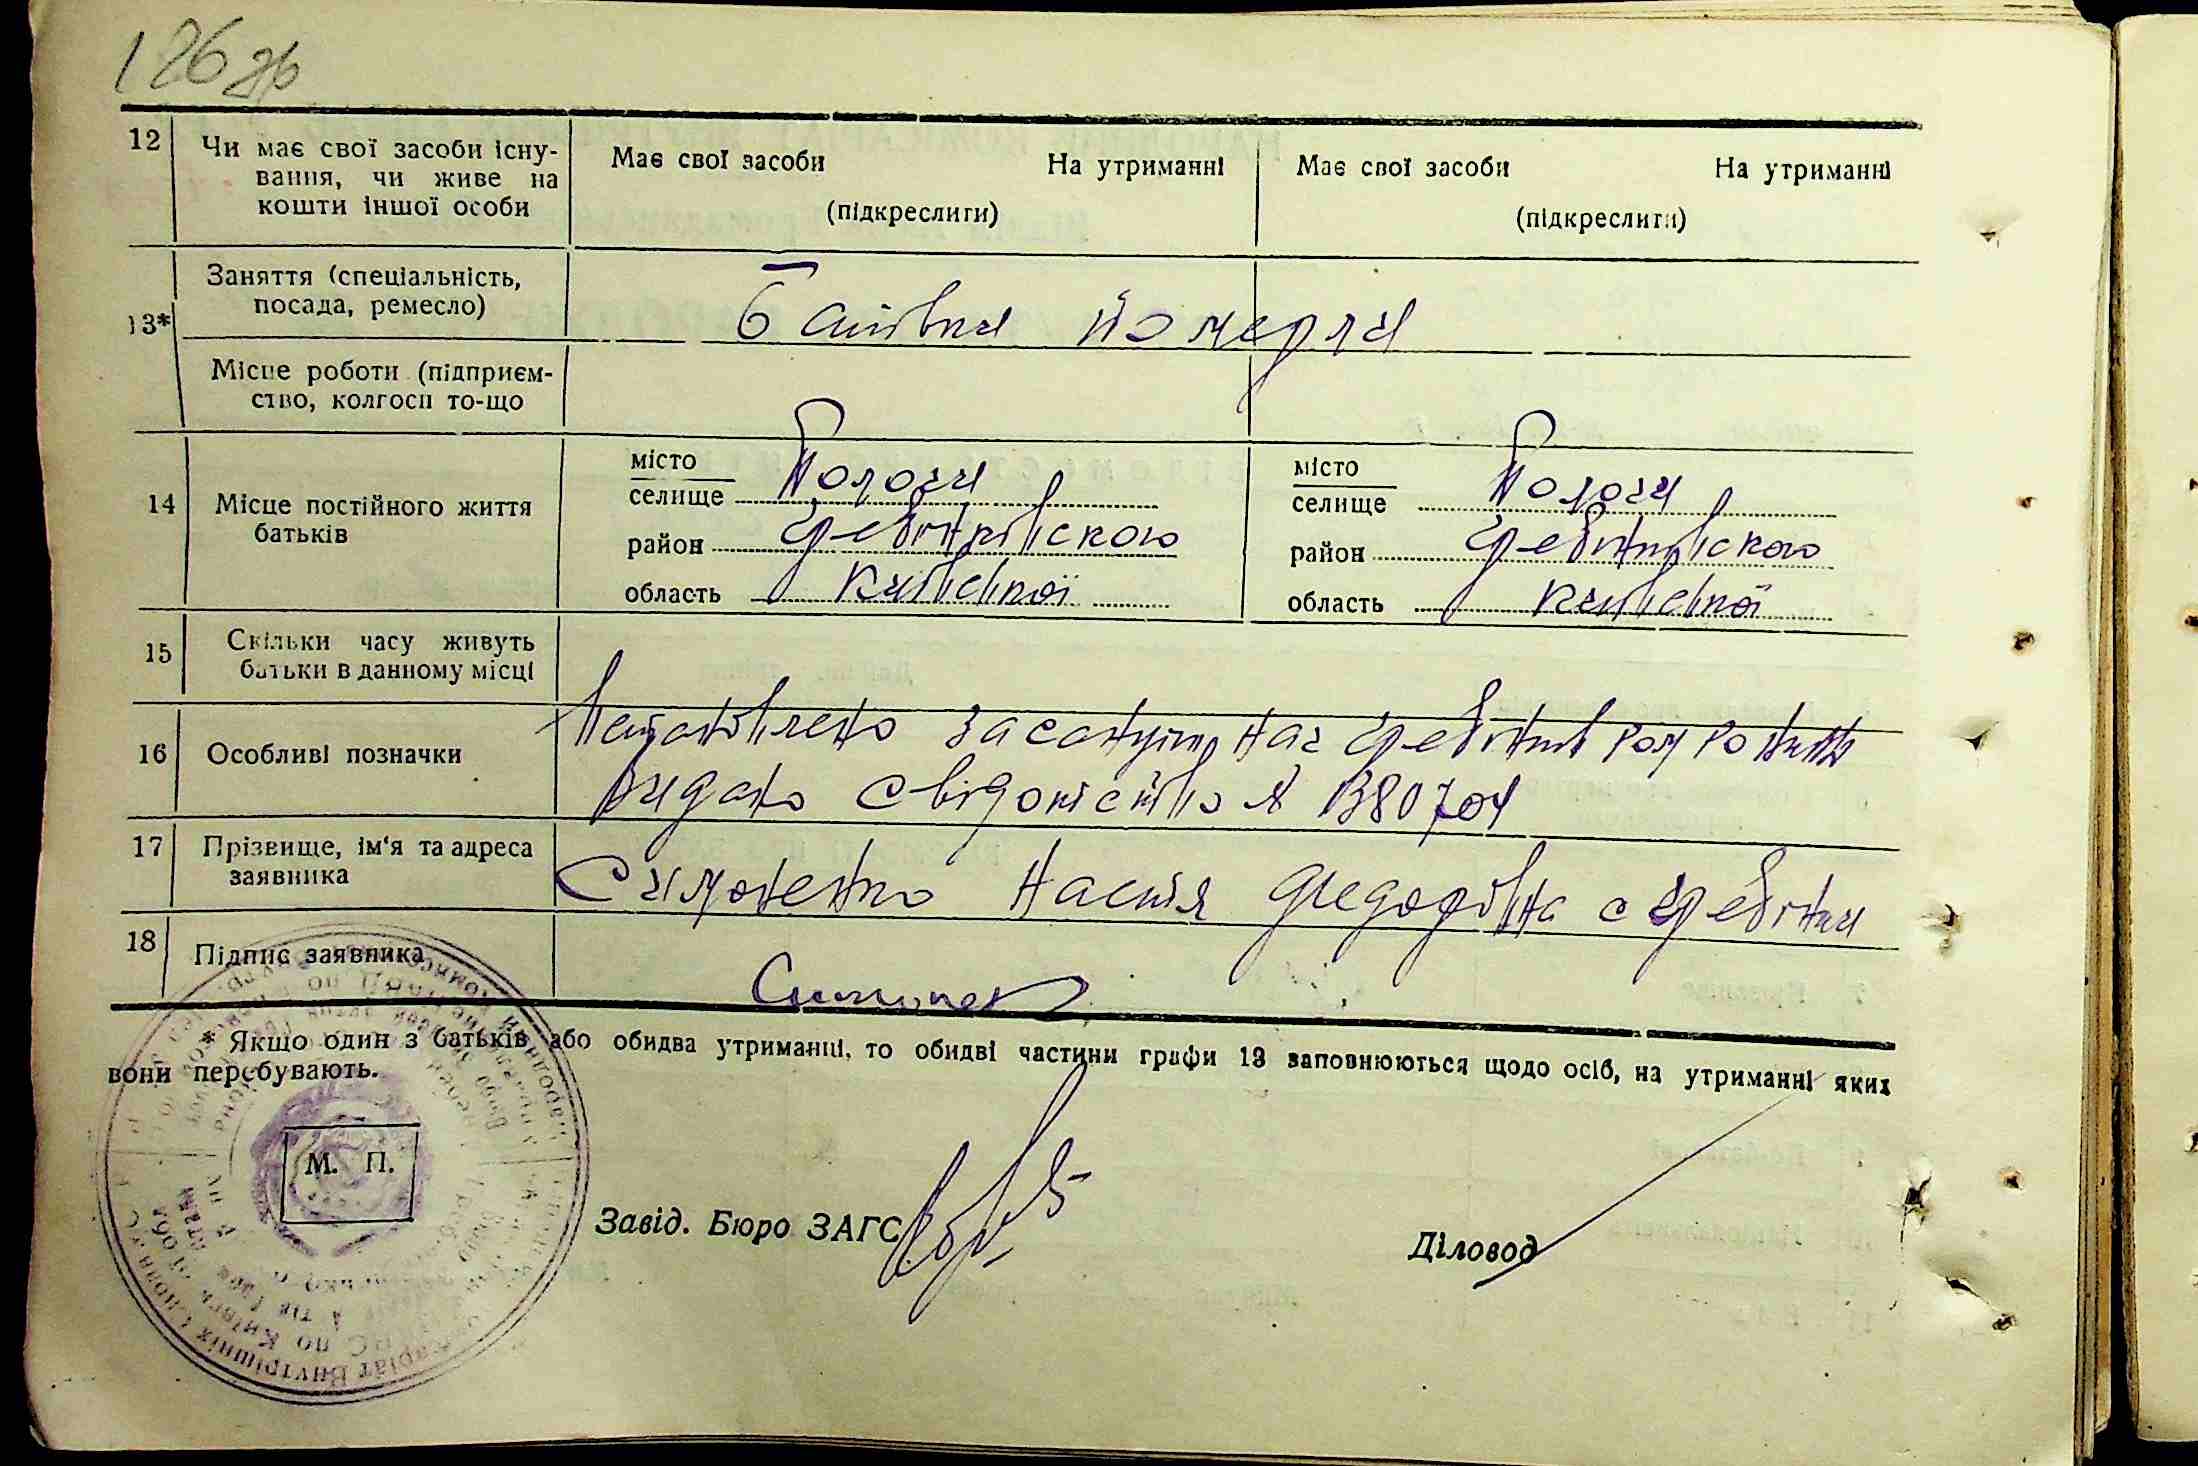 126 зв
12
Чи має свої засоби існу-
вання, чи живе на
кошти іншої особи
Має свої засоби На утриманні
(підкреслити)
Має свої засоби На утриманні
(підкреслити)
13*
Заняття (спеціальність,
посада, ремесло)
Батьки померли
Місце роботи (підприєм-
ство, колгосп то-що
14
Місце постійного життя
батьків
місто
селище Пологи
район Гребінківского
область Київської
місто
селище Пологи
район Гребінківского
область Київської
15
Скільки часу живуть
батьки в данному місці
16
Особливі позначки
Встановлено за
видано свідоцтво № 1380704
17
Прізвище, ім'я та адреса
заявника
Симоненко Настія Федорівна с Гребінки
18
Підпис заявника
* Якщо один з батьків або обидва утриманці, то обидві частини графи 13 заповнюються щодо осіб, на утриманні яких
вони перебувають.
М. П.
Завід. Бюро ЗАГС
Діловод